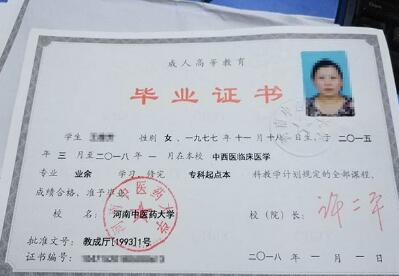 成人高等教育
毕业证书
学生 王 性别 女，一九七七年十一月十八日生，于二〇一五
年三月至二〇一八年一月在本校 中西医临床医学
专业 业余 学习，修完 专科起点本科教学计划规定的全部课程，
成绩合格，准予毕业。
校 名： 河南中医药大学 校（院）长： 许二平
批准文号： 教成厅[1993]1号
证书编号： 二〇一八年一月一日
河南中医药大学